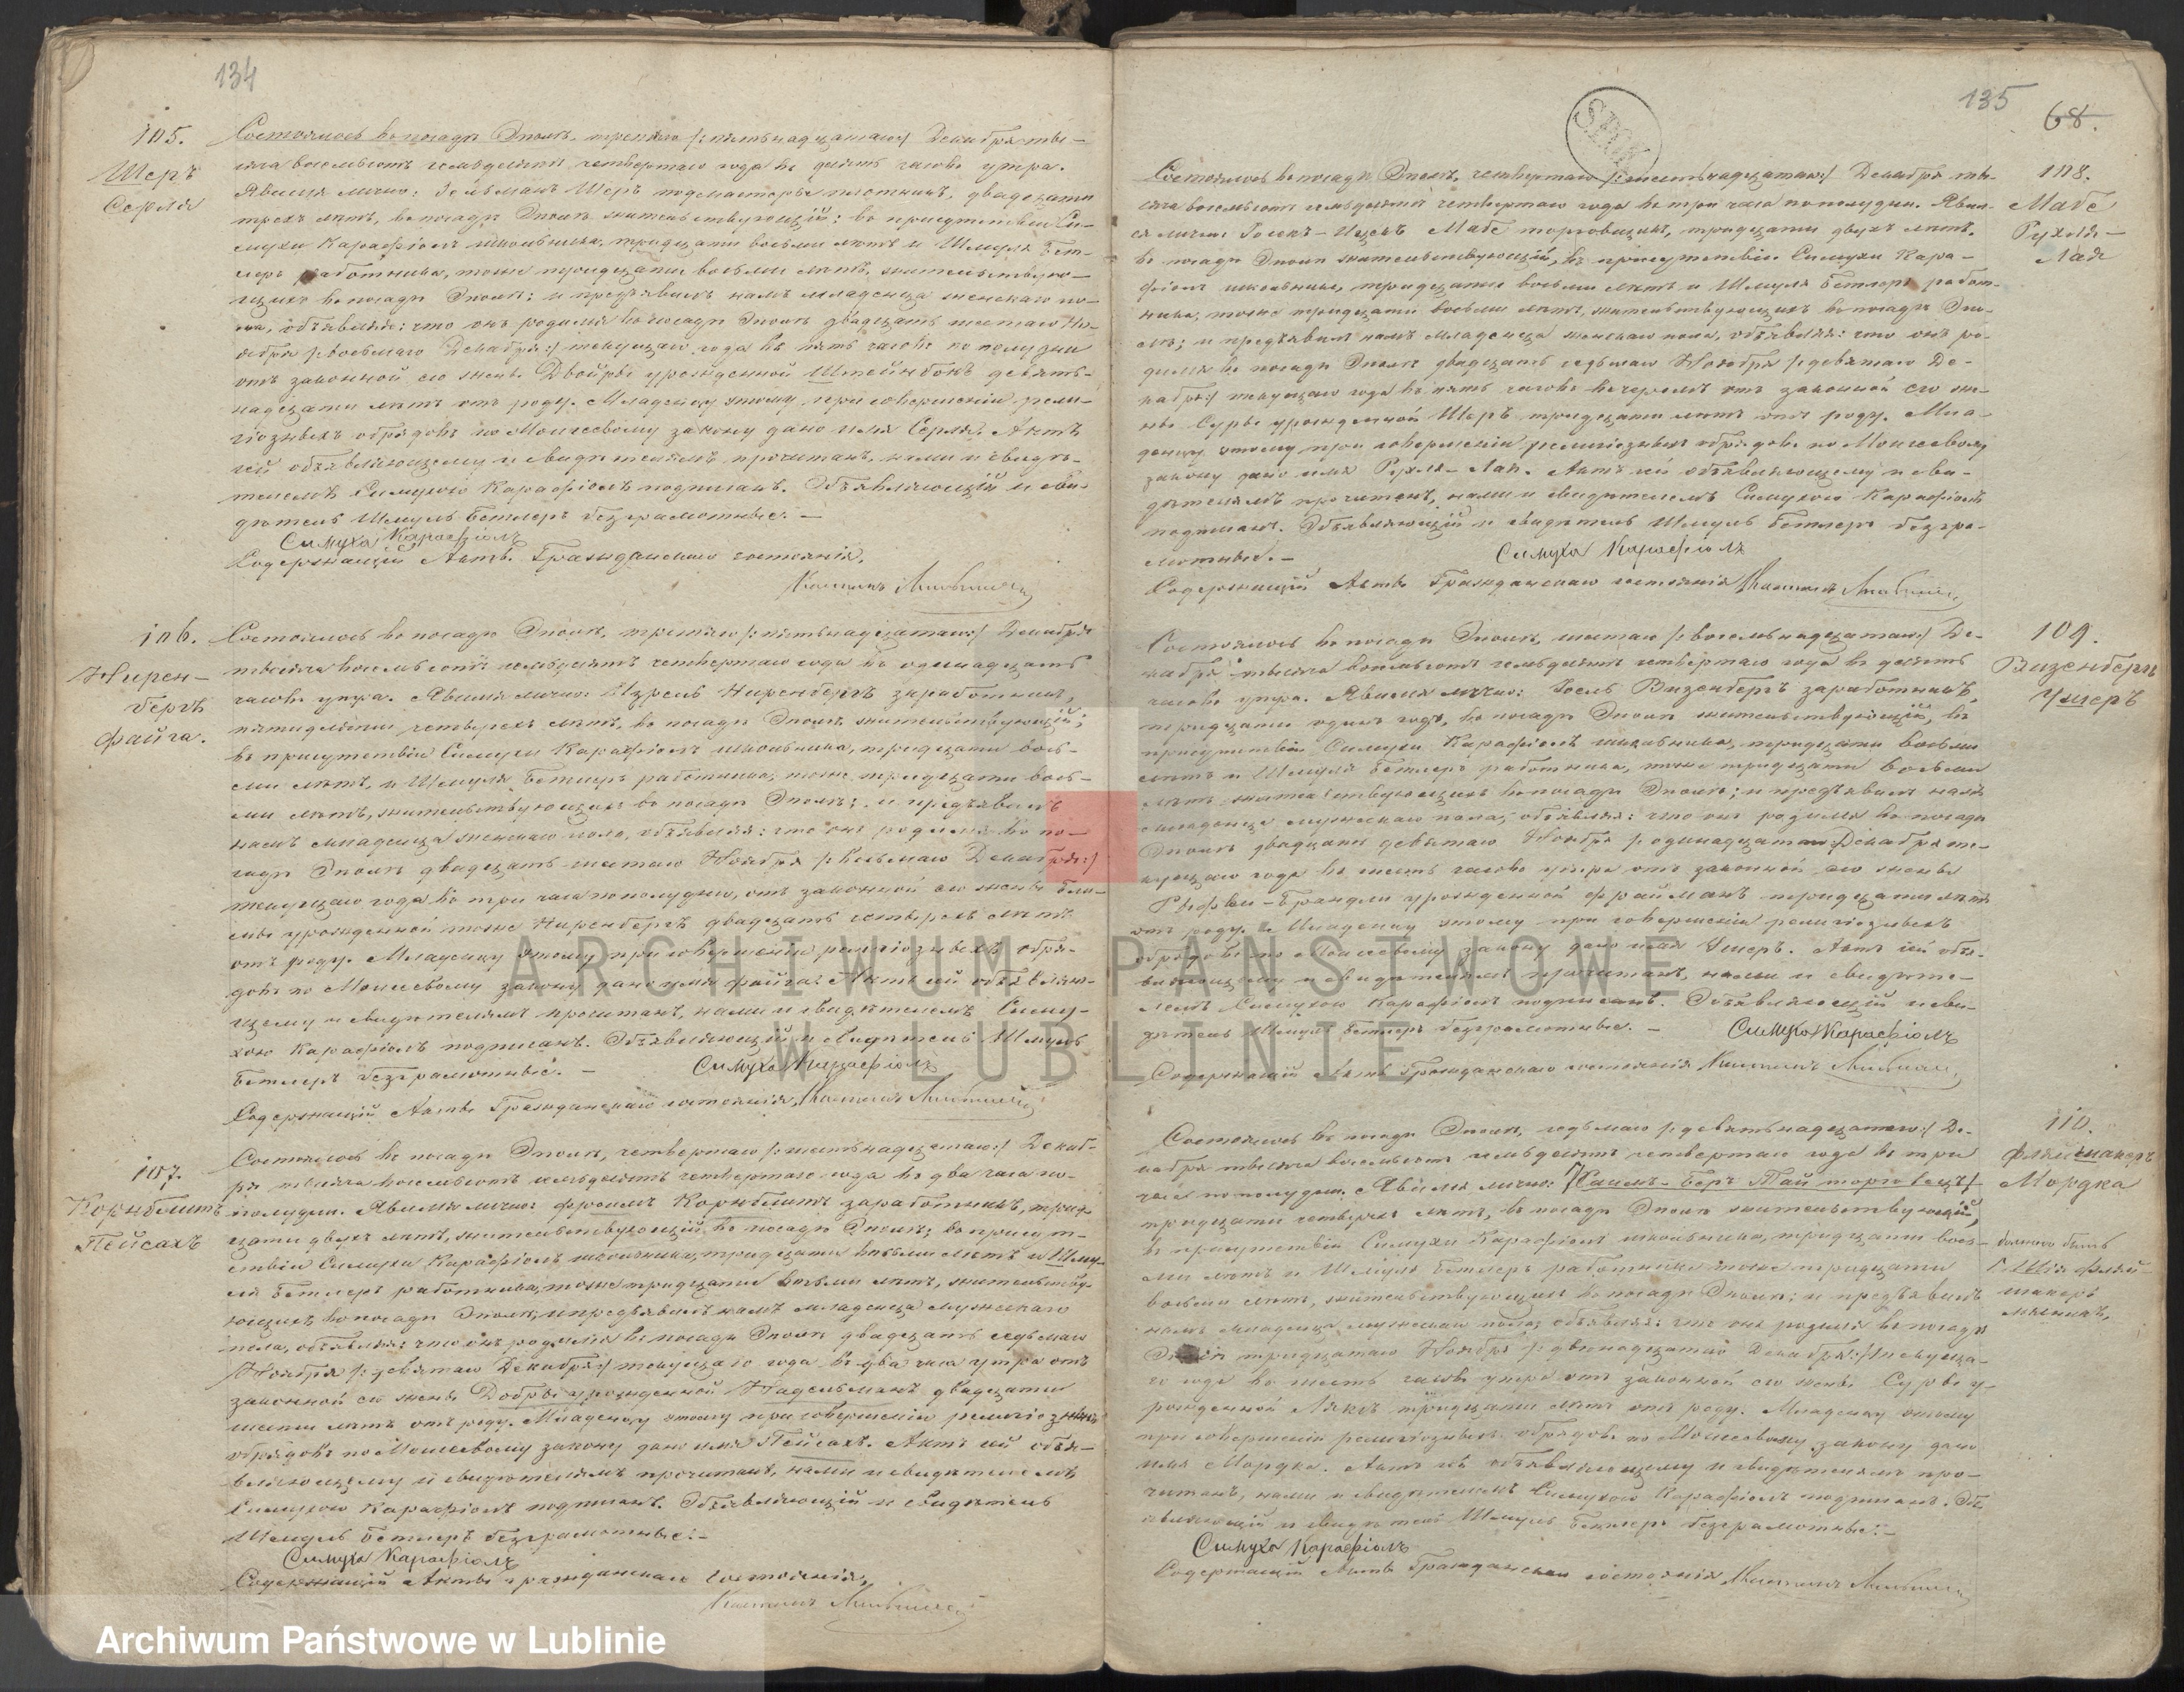 134
105.
Шеръ
Серля
Состоялось въ посадѣ Эполѣ, третяго /:пятьнадцатаго:/ Декабря ты-
сяча восемьсотъ семьдесятъ четвертаго года въ десять часовъ утра.
Явился лично: Зельманъ Шеръ подмастерье плотникъ, двадцати
трехъ лѣтъ, въ посадѣ Эполѣ жительствующій; въ присутствіи Си-
мухи Карафіолъ школьника, тридцати восьми лѣтъ и Шмуля Бет-
леръ работника, тоже тридцати восьми лѣтъ, жительствую-
щихъ въ посадѣ Эполѣ; и предъявилъ намъ младенца женскаго по-
ла, объявляя: что онъ родился въ посадѣ Эполѣ двадцать шестаго Но-
ября /:восьмаго Декабря:/ текущаго года въ пять часовъ по полудни
отъ законной его жены Двойры урожденной Штейнбокъ девять-
надцати лѣтъ отъ роду. Младенцу этому при совершеніи рели-
гіозныхъ обрядовъ по Моисеевому закону дано имя Серля. Актъ
сей объявляющему и свидѣтелямъ прочитанъ, нами и свидѣ-
телемъ Симухою Карафіолъ подписанъ. Объявляющій и сви-
дѣтель Шмуль Бетлеръ безграмотные. —
Симуха Карафіолъ
Содержащій Акты Гражданскаго состоянія,
106.
Нирен-
бергъ
Файга.
Состоялось въ посадѣ Эполѣ, третяго /:пятьнадцатаго:/ Декабря
тысяча восемьсотъ семьдесятъ четвертаго года въ одинадцать
часовъ утра. Явился лично: Изрель Ниренбергъ заработникъ,
пятидесяти четырехъ лѣтъ, въ посадѣ Эполѣ жительствующій;
въ присутствіи Симухи Карафіолъ школьника, тридцати вось-
ми лѣтъ, и Шмуля Бетлеръ работника, тоже тридцати вось-
ми лѣтъ, жительствующихъ въ посадѣ Эполѣ; и предъявилъ
намъ младенца женскаго пола, объявляя: что онъ родился въ по-
садѣ Эполѣ двадцать шестаго Ноября /:восьмаго Декабря:/
текущаго года въ три часа пополудни, отъ законной его жены
урожденной тоже Ниренбергъ двадцать четырехъ лѣтъ
отъ роду. Младенцу этому при совершеніи религіозныхъ обря-
довъ по Моисеевому закону дано имя Файга. Актъ сей объявляю-
щему и свидѣтелямъ прочитанъ, нами и свидѣтелемъ Симу-
хою Карафіолъ подписанъ. Объявляющій и свидѣтель Шмуль
Бетлеръ безграмотные. —
Симуха Карафіолъ
Содержащій Акты Гражданскаго состоянія,
107.
Корнблитъ
Пейсахъ
Состоялось въ посадѣ Эполѣ, четвертаго /:шестьнадцатаго:/ Декаб-
ря тысяча восемьсотъ семьдесятъ четвертаго года въ два часа по-
полудни. Явился лично: Фроимъ Корнблитъ заработникъ, трид-
цати двухъ лѣтъ, жительствующій въ посадѣ Эполѣ; въ присут-
ствіи Симухи Карафіолъ школьника, тридцати восьми лѣтъ и Шму-
ля Бетлеръ работника, тоже тридцати восьми лѣтъ, жительству-
ющихъ въ посадѣ Эполѣ; и предъявилъ намъ младенца мужескаго
пола, объявляя: что онъ родился въ посадѣ Эполѣ двадцать седьмаго
Ноября /:девятаго Декабря:/ текущаго года въ два часа утра отъ
законной его жены Добры урожденной Надельманъ двадцати
шести лѣтъ отъ роду. Младенцу этому при совершеніи религіозныхъ
обрядовъ по Моисеевому закону дано имя Пейсахъ. Актъ сей объя-
вляющему и свидѣтелямъ прочитанъ, нами и свидѣтелемъ
Симухою Карафіолъ подписанъ. Объявляющій и свидѣтель
Шмуль Бетлеръ безграмотные. —
Симуха Карафіолъ
Содержащій Акты гражданскаго состоянія,
135
68.
108.
Мабе
Рухля-
Лая
Состоялось въ посадѣ Эполѣ, четвертаго /:шестьнадцатаго:/ Декабря ты-
сяча восемьсотъ семьдесятъ четвертаго года въ три часа пополудни. Явил-
ся лично: Мабе торговецъ, тридцати двухъ лѣтъ,
въ посадѣ Эполѣ жительствующій, въ присутствіи Симухи Кара-
фіолъ школьника, тридцати восьми лѣтъ и Шмуля Бетлеръ работ-
ника, тоже тридцати восьми лѣтъ, жительствующихъ въ посадѣ Эпо-
лѣ; и предъявилъ намъ младенца женскаго пола, объявляя: что онъ ро-
дился въ посадѣ Эполѣ двадцать седьмаго Ноября /:девятаго Де-
кабря:/ текущаго года въ пять часовъ вечеромъ отъ законной его же-
ны Суры урожденной Шеръ тридцати лѣтъ отъ роду. Мла-
денцу этому при совершеніи религіозныхъ обрядовъ по Моисеевому
закону дано имя Рухля-Лая. Актъ сей объявляющему и сви-
дѣтелямъ прочитанъ, нами и свидѣтелемъ Симухою Карафіолъ
подписанъ. Объявляющій и свидѣтель Шмуль Бетлеръ безгра-
мотные. —
Симуха Карафіолъ
Содержащій Акты Гражданскаго состоянія
109.
Визенбергъ
Ушеръ
Состоялось въ посадѣ Эполѣ, шестаго /:восемьнадцатаго:/ Де-
кабря тысяча восемьсотъ семьдесятъ четвертаго года въ десять
часовъ утра. Явился лично: Іосель Визенбергъ заработникъ,
тридцати одинъ годъ, въ посадѣ Эполѣ жительствующій, въ
присутствіи Симухи Карафіолъ школьника, тридцати восьми
лѣтъ и Шмуля Бетлеръ работника, тоже тридцати восьми
лѣтъ жительствующихъ въ посадѣ Эполѣ; и предъявилъ намъ
младенца мужескаго пола, объявляя: что онъ родился въ посадѣ
Эполѣ двадцать девятаго Ноября /:одинадцатаго Декабря те-
кущаго года въ шесть часовъ утра отъ законной его жены
Рифки-Брандли урожденной Фрайманъ тридцати лѣтъ
отъ роду. Младенцу этому при совершеніи религіозныхъ
обрядовъ по Моисеевому закону дано имя Ушеръ. Актъ сей объя-
вляющему и свидѣтелямъ прочитанъ, нами и свидѣте-
лемъ Симухою Карафіолъ подписанъ. Объявляющій и сви-
дѣтель Шмуль Бетлеръ безграмотные. —
Симуха Карафіолъ
Содержащій Акты Гражданскаго состоянія
110.
Флайшакеръ
Мордка
должно быть
Шія Флай-
шакеръ
мясникъ,
Состоялось въ посадѣ Эполѣ, седьмаго /:девятьнадцатаго:/ Де-
кабря тысяча восемьсотъ семьдесятъ четвертаго года въ три
часа пополудни. Явился лично: /Хаимъ-Беръ Тай торговецъ/
тридцати четырехъ лѣтъ, въ посадѣ Эполѣ жительствующій,
въ присутствіи Симухи Карафіолъ школьника, тридцати вось-
ми лѣтъ и Шмуля Бетлеръ работника тоже тридцати
восьми лѣтъ, жительствующихъ въ посадѣ Эполѣ; и предъявилъ
намъ младенца мужескаго пола, объявляя: что онъ родился въ посадѣ
Эполѣ тридцатаго Ноября /:двѣнадцатаго Декабря:/ текуща-
го года въ шесть часовъ утра отъ законной его жены Суры у-
рожденной Лякъ тридцати лѣтъ отъ роду. Младенцу этому
при совершеніи религіозныхъ обрядовъ по Моисеевому закону дано
имя Мордка. Актъ сей объявляющему и свидѣтелямъ про-
читанъ, нами и свидѣтелемъ Симухою Карафіолъ подписанъ. Объ-
являющій и свидѣтель Шмуль Бетлеръ безграмотные. —
Симуха Карафіолъ
Содержащій Акты Гражданскаго состоянія
ARCHIWUM PAŃSTWOWE
W LUBLINIE
Archiwum Państwowe w Lublinie